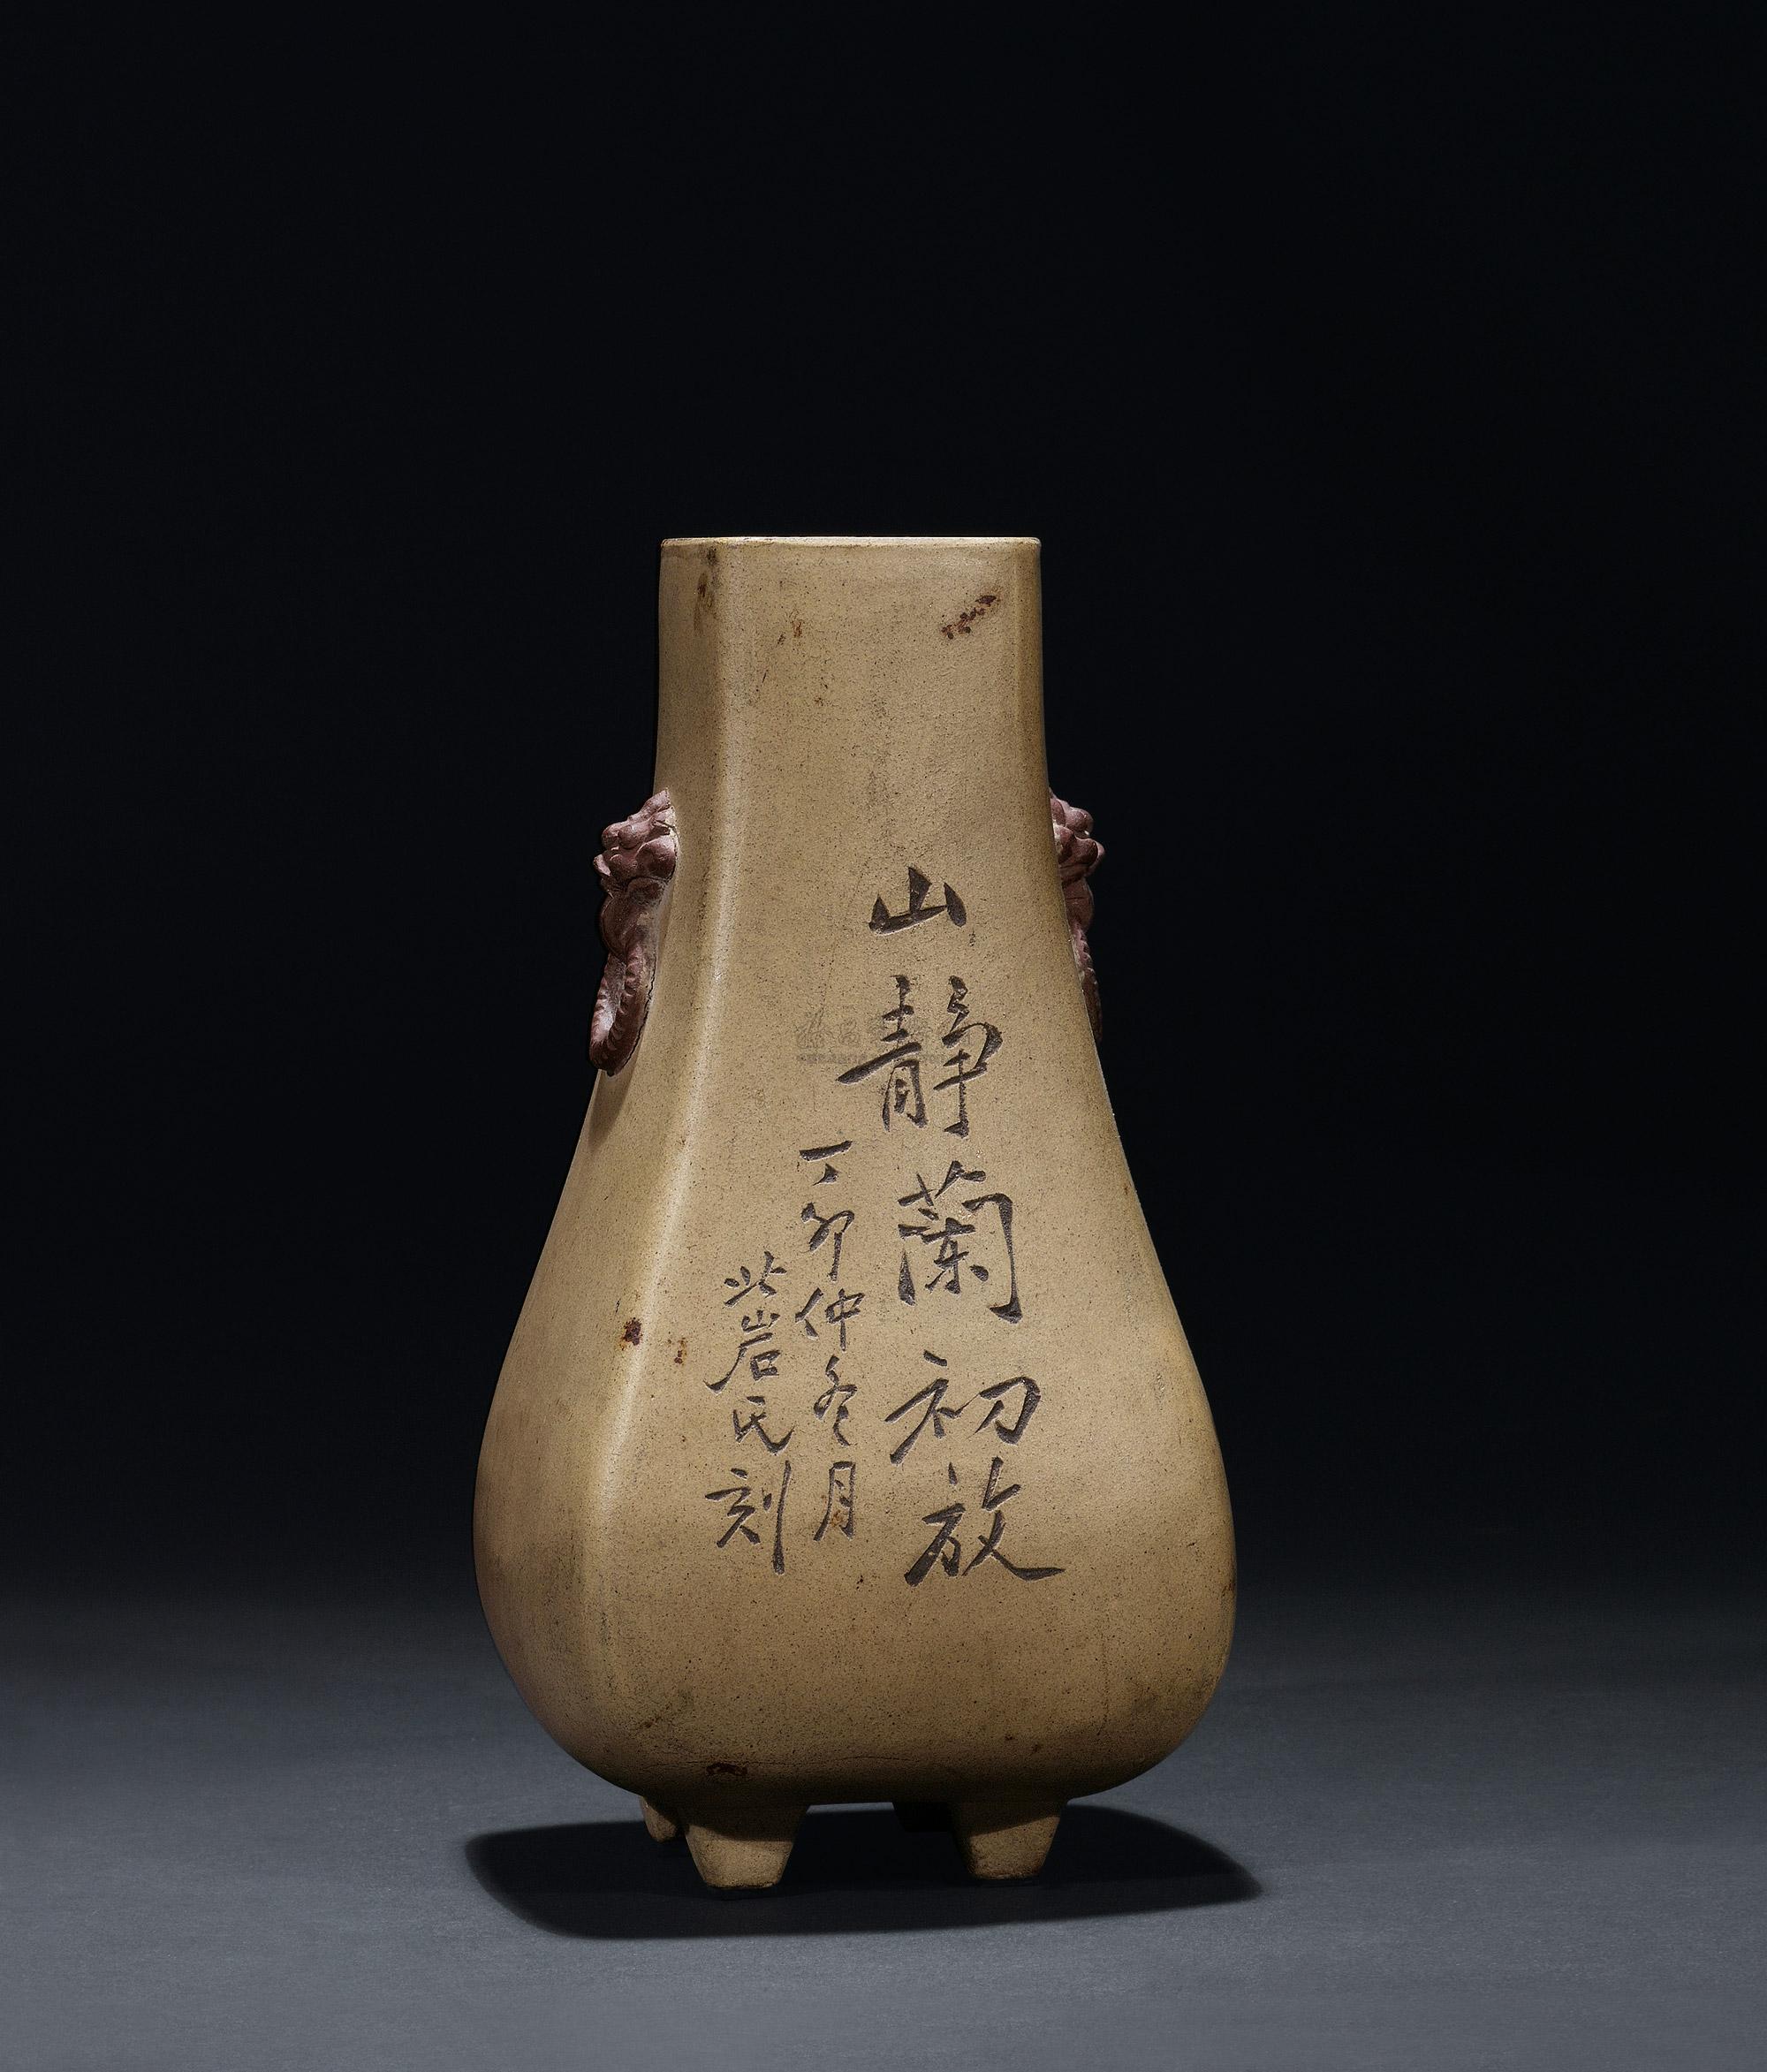 山靜蘭初放
丁卯仲冬月
此岩氏刻